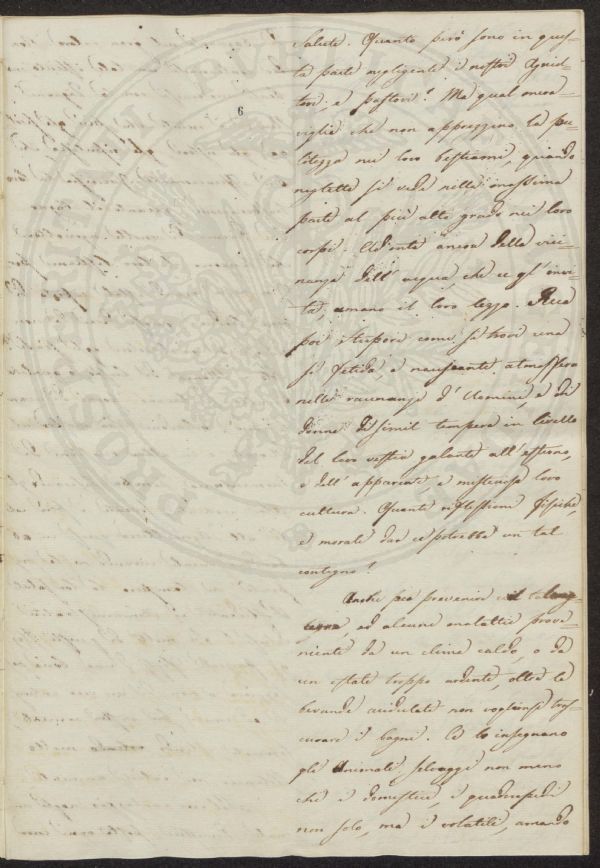 6
salute. Quanto però sono in ques-
ta parte negligenti i nostri Agricol
tori e pastori! Ma qual mara-
viglia che non apprezzino la pu-
litezza nei loro bestiami, quando
negletta si vede nella massima
parte al più alto grado nei loro
corpi. Ad onta ancora della vici-
nanza dell' acqua, che ce gl' invi-
ta, amano il loro lezzo. Reca
poi stupore come si trovi una
sì fetida, e nauseante atmosfera
nelle raunanze d' Uomini, e di
donne di simil tempera in livello
del loro vestir galante all' esterno,
e dell' apparente, e misteriosa loro
cultura. Quante riflessioni fisiche,
e morali dar ce potrebbe un tal
contegno!
Anche per prevenire
ed alcune malattie prove-
nienti da un clima caldo, o da
un estate troppo ardente, oltre le
bevande acidulate non vogliansi tras-
curare i bagni. Ce lo insegnano
gli Animali selvaggi non meno
che i domestici, i quadrupedi
non solo, ma i volatili, amando